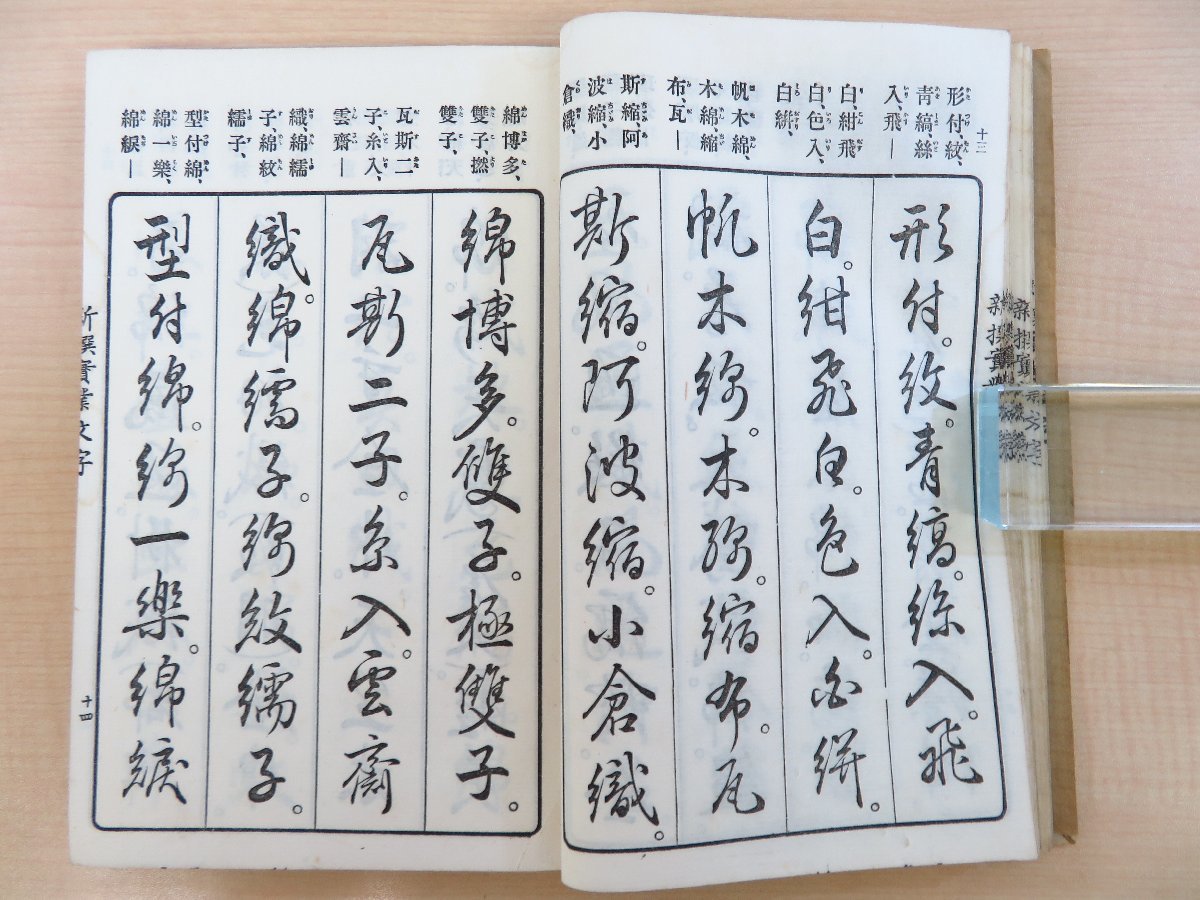 十三
形付、紋、
靑縞、絲
入、飛―
白、紺飛
白、色入、
白絣、
帆木綿、
木綿、縮
布、瓦―
斯縮、阿
波縮、小
倉織、
形付。紋。青縞。絲入。飛
白。紺飛白。色入。白絣。
帆木綿。木綿。縮布。瓦
斯縮。阿波縮。小倉織。
綿博多、
雙子、撚
雙子、
瓦斯二
子、糸入、
雲齋―
織、綿繻
子、綿紋
繻子、
型付綿、
綿一樂、
綿綟―
綿博多。雙子。極雙子。
瓦斯二子。糸入。雲齋
織。綿繻子。綿紋繻子。
型付綿。綿一樂。綿綟
新撰實業文字
十四